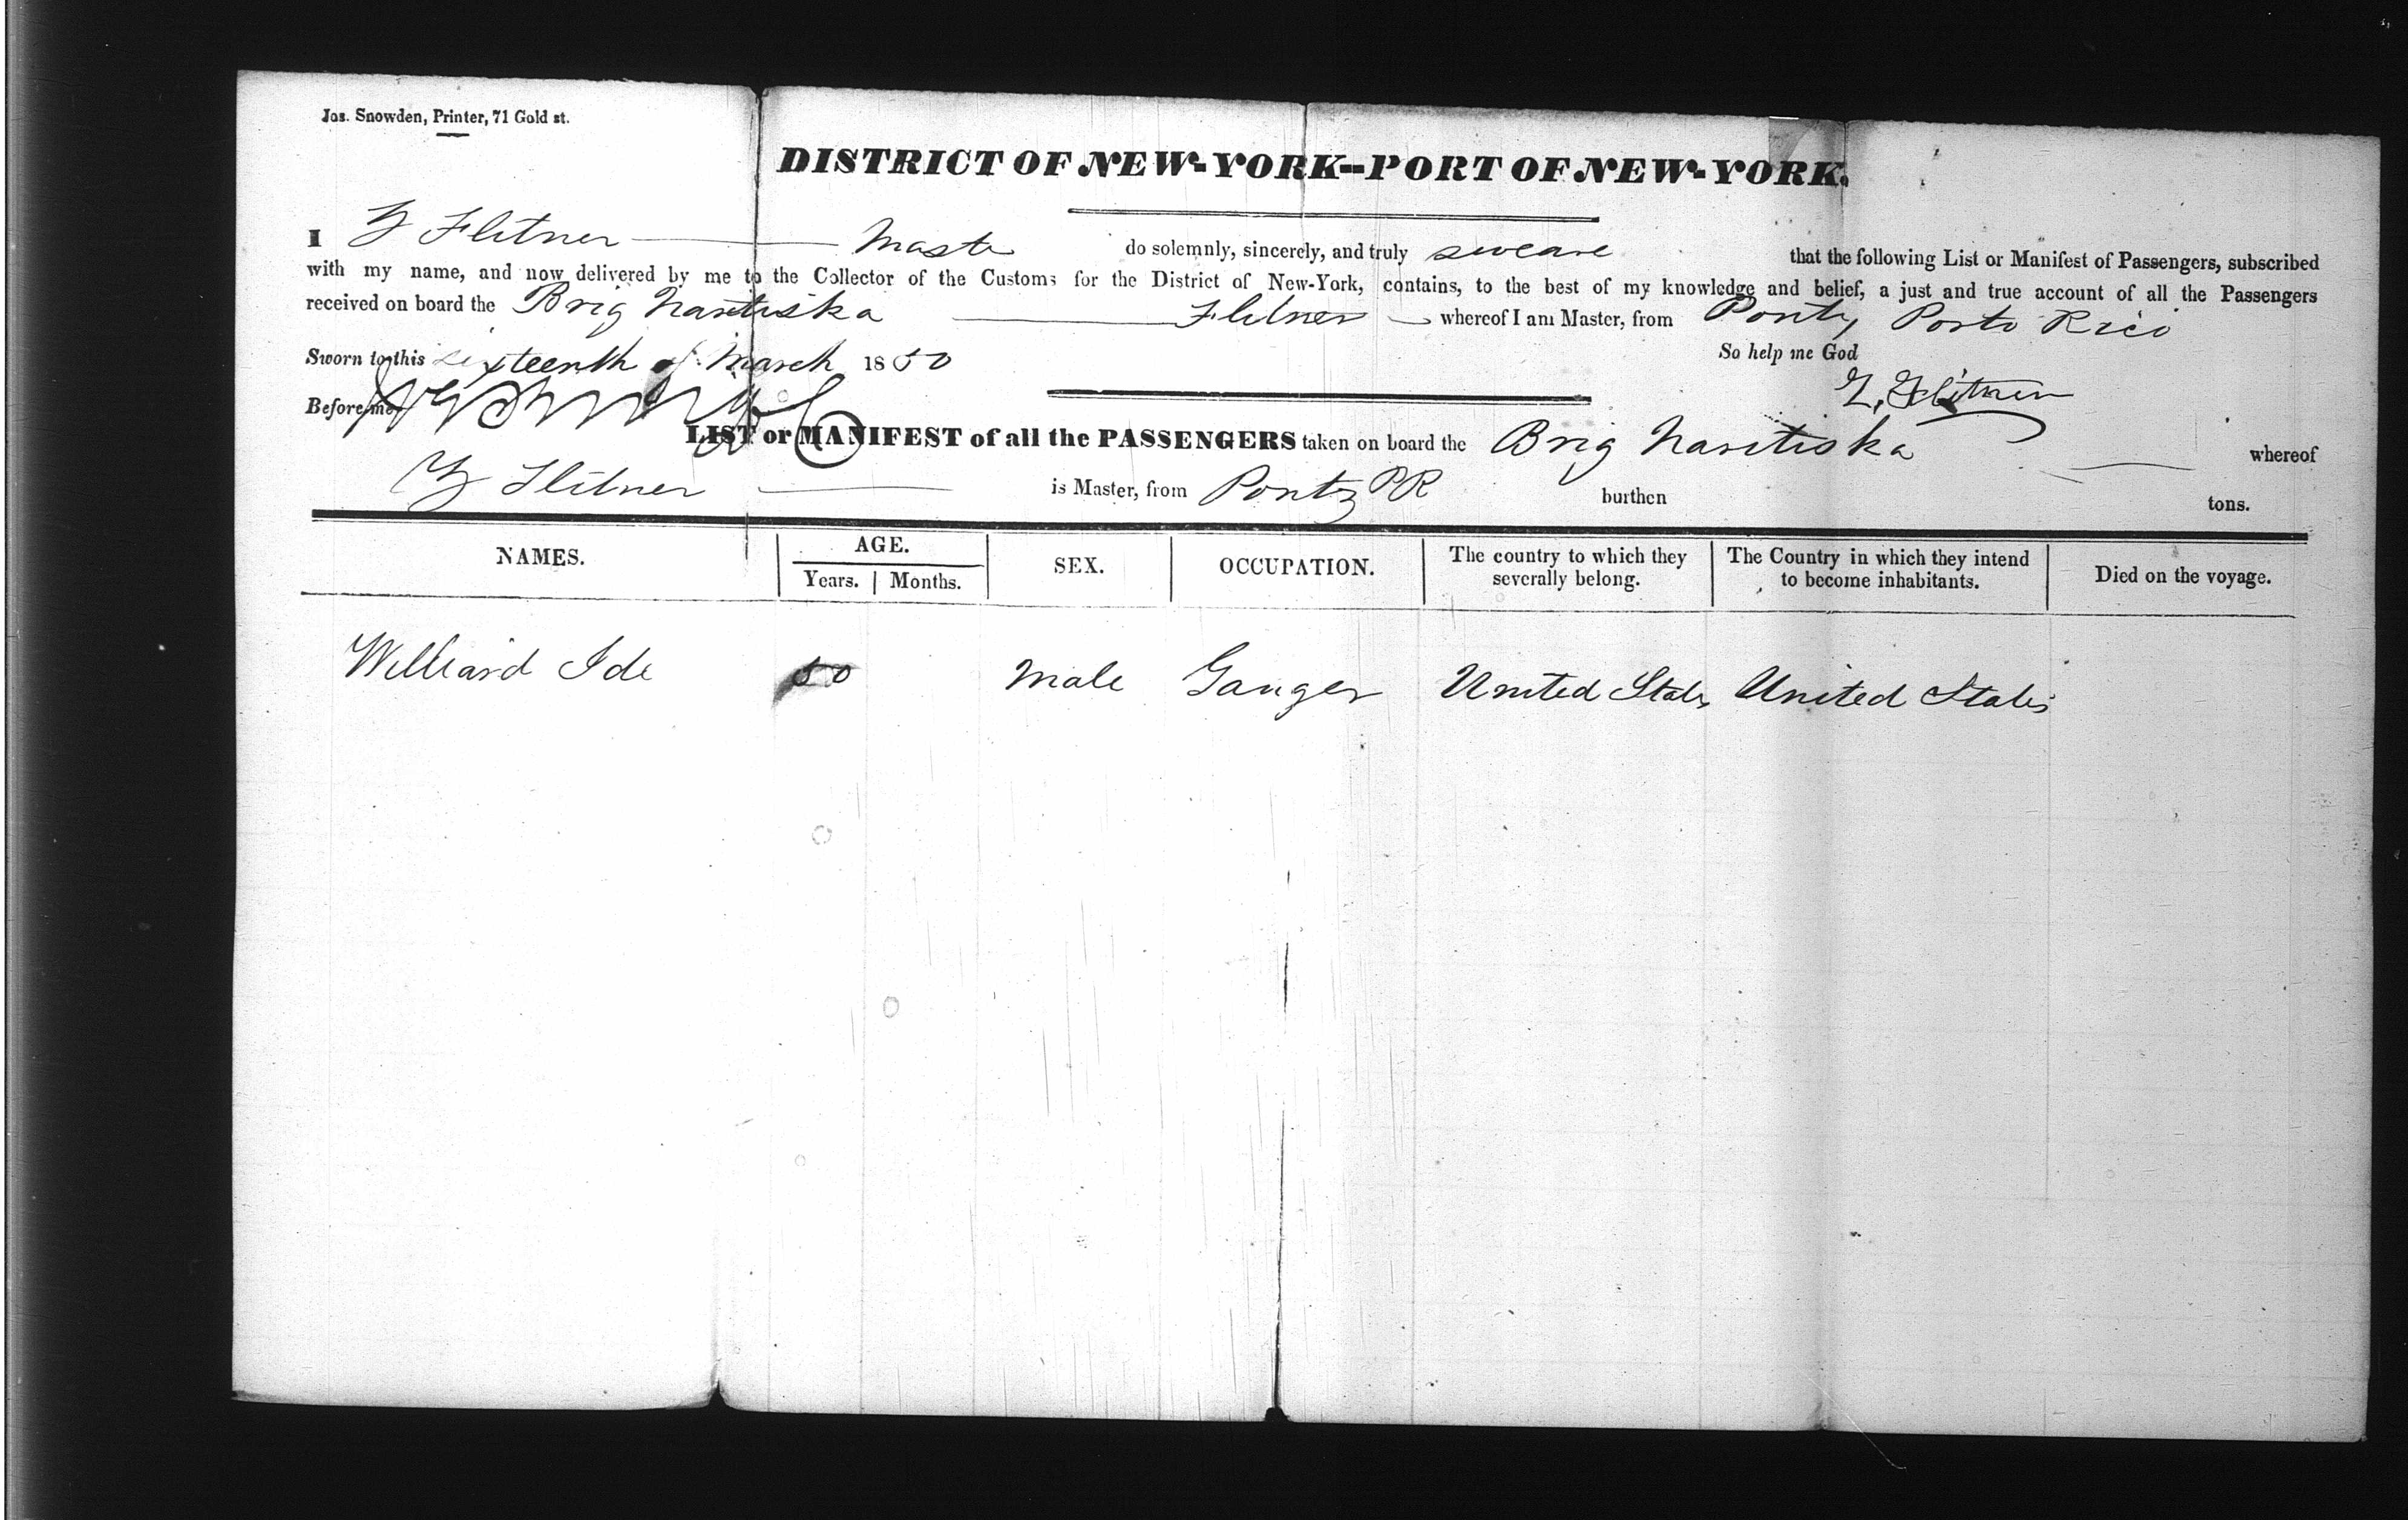 Jas. Snowden, Printer, 71 Gold st.
DISTRICT OF NEW-YORK--PORT OF NEW-YORK.
I Z Flitner Master do solemnly, sincerely, and truly sweare that the following List or Manifest of Passengers, subscribed
with my name, and now delivered by me to the Collector of the Customs for the District of New-York, contains, to the best of my knowledge and belief, a just and true account of all the Passengers
received on board the Brig Flitner whereof I am Master, from Porto Rico
Sworn to this sixteenth of March 1850 So help me God
Before me, Z. Flitner
LIST or MANIFEST of all the PASSENGERS taken on board the Brig whereof
Z Flitner is Master, from PR burthen tons.
NAMES. AGE. Years. Months. SEX. OCCUPATION. The country to which they severally belong. The Country in which they intend to become inhabitants. Died on the voyage.
Williard Ide 50 Male Ganger United States United States